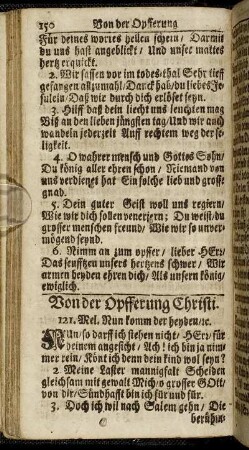 150 Von der Opfferung
Für deines wortes hellen schein/ Darmit
du uns hast angeblickt/ Und unser mattes
hertz erquickt.
2. Wir sassen vor im todes-thal Sehr tieff
gefangen allzumahl/ Danck hab/ du liebes Je-
sulein/ Daß wir durch dich erlöset seyn.
3. Hilff daß dein liecht uns leuchten mag
Biß an den lieben jüngsten tag/ Und wir auch
wandeln jederzeit Auff rechtem weg der se-
ligkeit.
4. O wahrer mensch und Gottes Sohn/
Du könig aller ehren schon/ Niemand von
uns verdienet hat Ein solche lieb und grosse
gnad.
5. Dein guter Geist woll uns regiern/
Wie wir dich sollen veneriern; Du weist/ du
grosser menschen freund/ Wie wir so unver-
mögend seynd.
6. Nimm an zum opffer/ lieber HErr
Das seufftzen unsers hertzens schwer/ Wir
armen heyden ehren dich/ Als unsern könig
ewiglich.
Von der Opfferung Christi.
121. Mel. Nun komm der heyden/ ꝛc.
Nun/ so darff ich stehen nicht/ HErr/ für
deinem angesicht/ Ach! ich bin ja nim-
mer rein/ Könt ich denn dein kind wol seyn?
2 Meine Laster mannigfalt Scheiden
gleichsam mit gewalt Mich/ o grosser GOtt/
von dir/ Sündhafft bin ich für und für.
3. Doch ich wil nach Salem gehn/ Die
berühm-